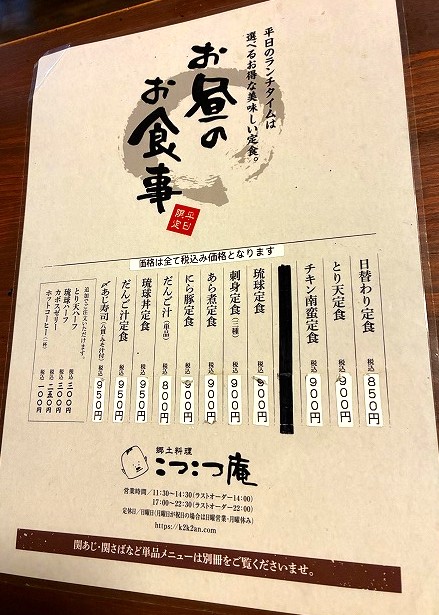 平日のランチタイムは
選べるお得な美味しい定食。
お昼の
お食事
平日
限定
価格は全て税込み価格となります
日替わり定食 税込 850円
とり天定食 税込 900円
チキン南蛮定食 税込 900円
琉球定食 税込 900円
刺身定食(三種) 税込 900円
あら煮定食 税込 900円
にら豚定食 税込 900円
だんご汁(単品) 税込 800円
琉球丼定食 税込 950円
だんご汁定食 税込 950円
あじ寿司(八貫・みそ汁付) 税込 950円
追加でご注文いただけます。
とり天ハーフ 税込 三〇〇円
琉球ハーフ 税込 三〇〇円
カボスゼリー 税込 二五〇円
ホットコーヒー(一杯) 税込 一〇〇円
郷土料理
こつこつ庵
営業時間/11:30~14:30(ラストオーダー14:00)
17:00~22:30(ラストオーダー22:00)
定休日/日曜日(月曜日が祝日の場合は日曜営業・月曜休み)
https://k2k2an.com
関あじ・関さばなど単品メニューは別冊をご覧くださいませ。